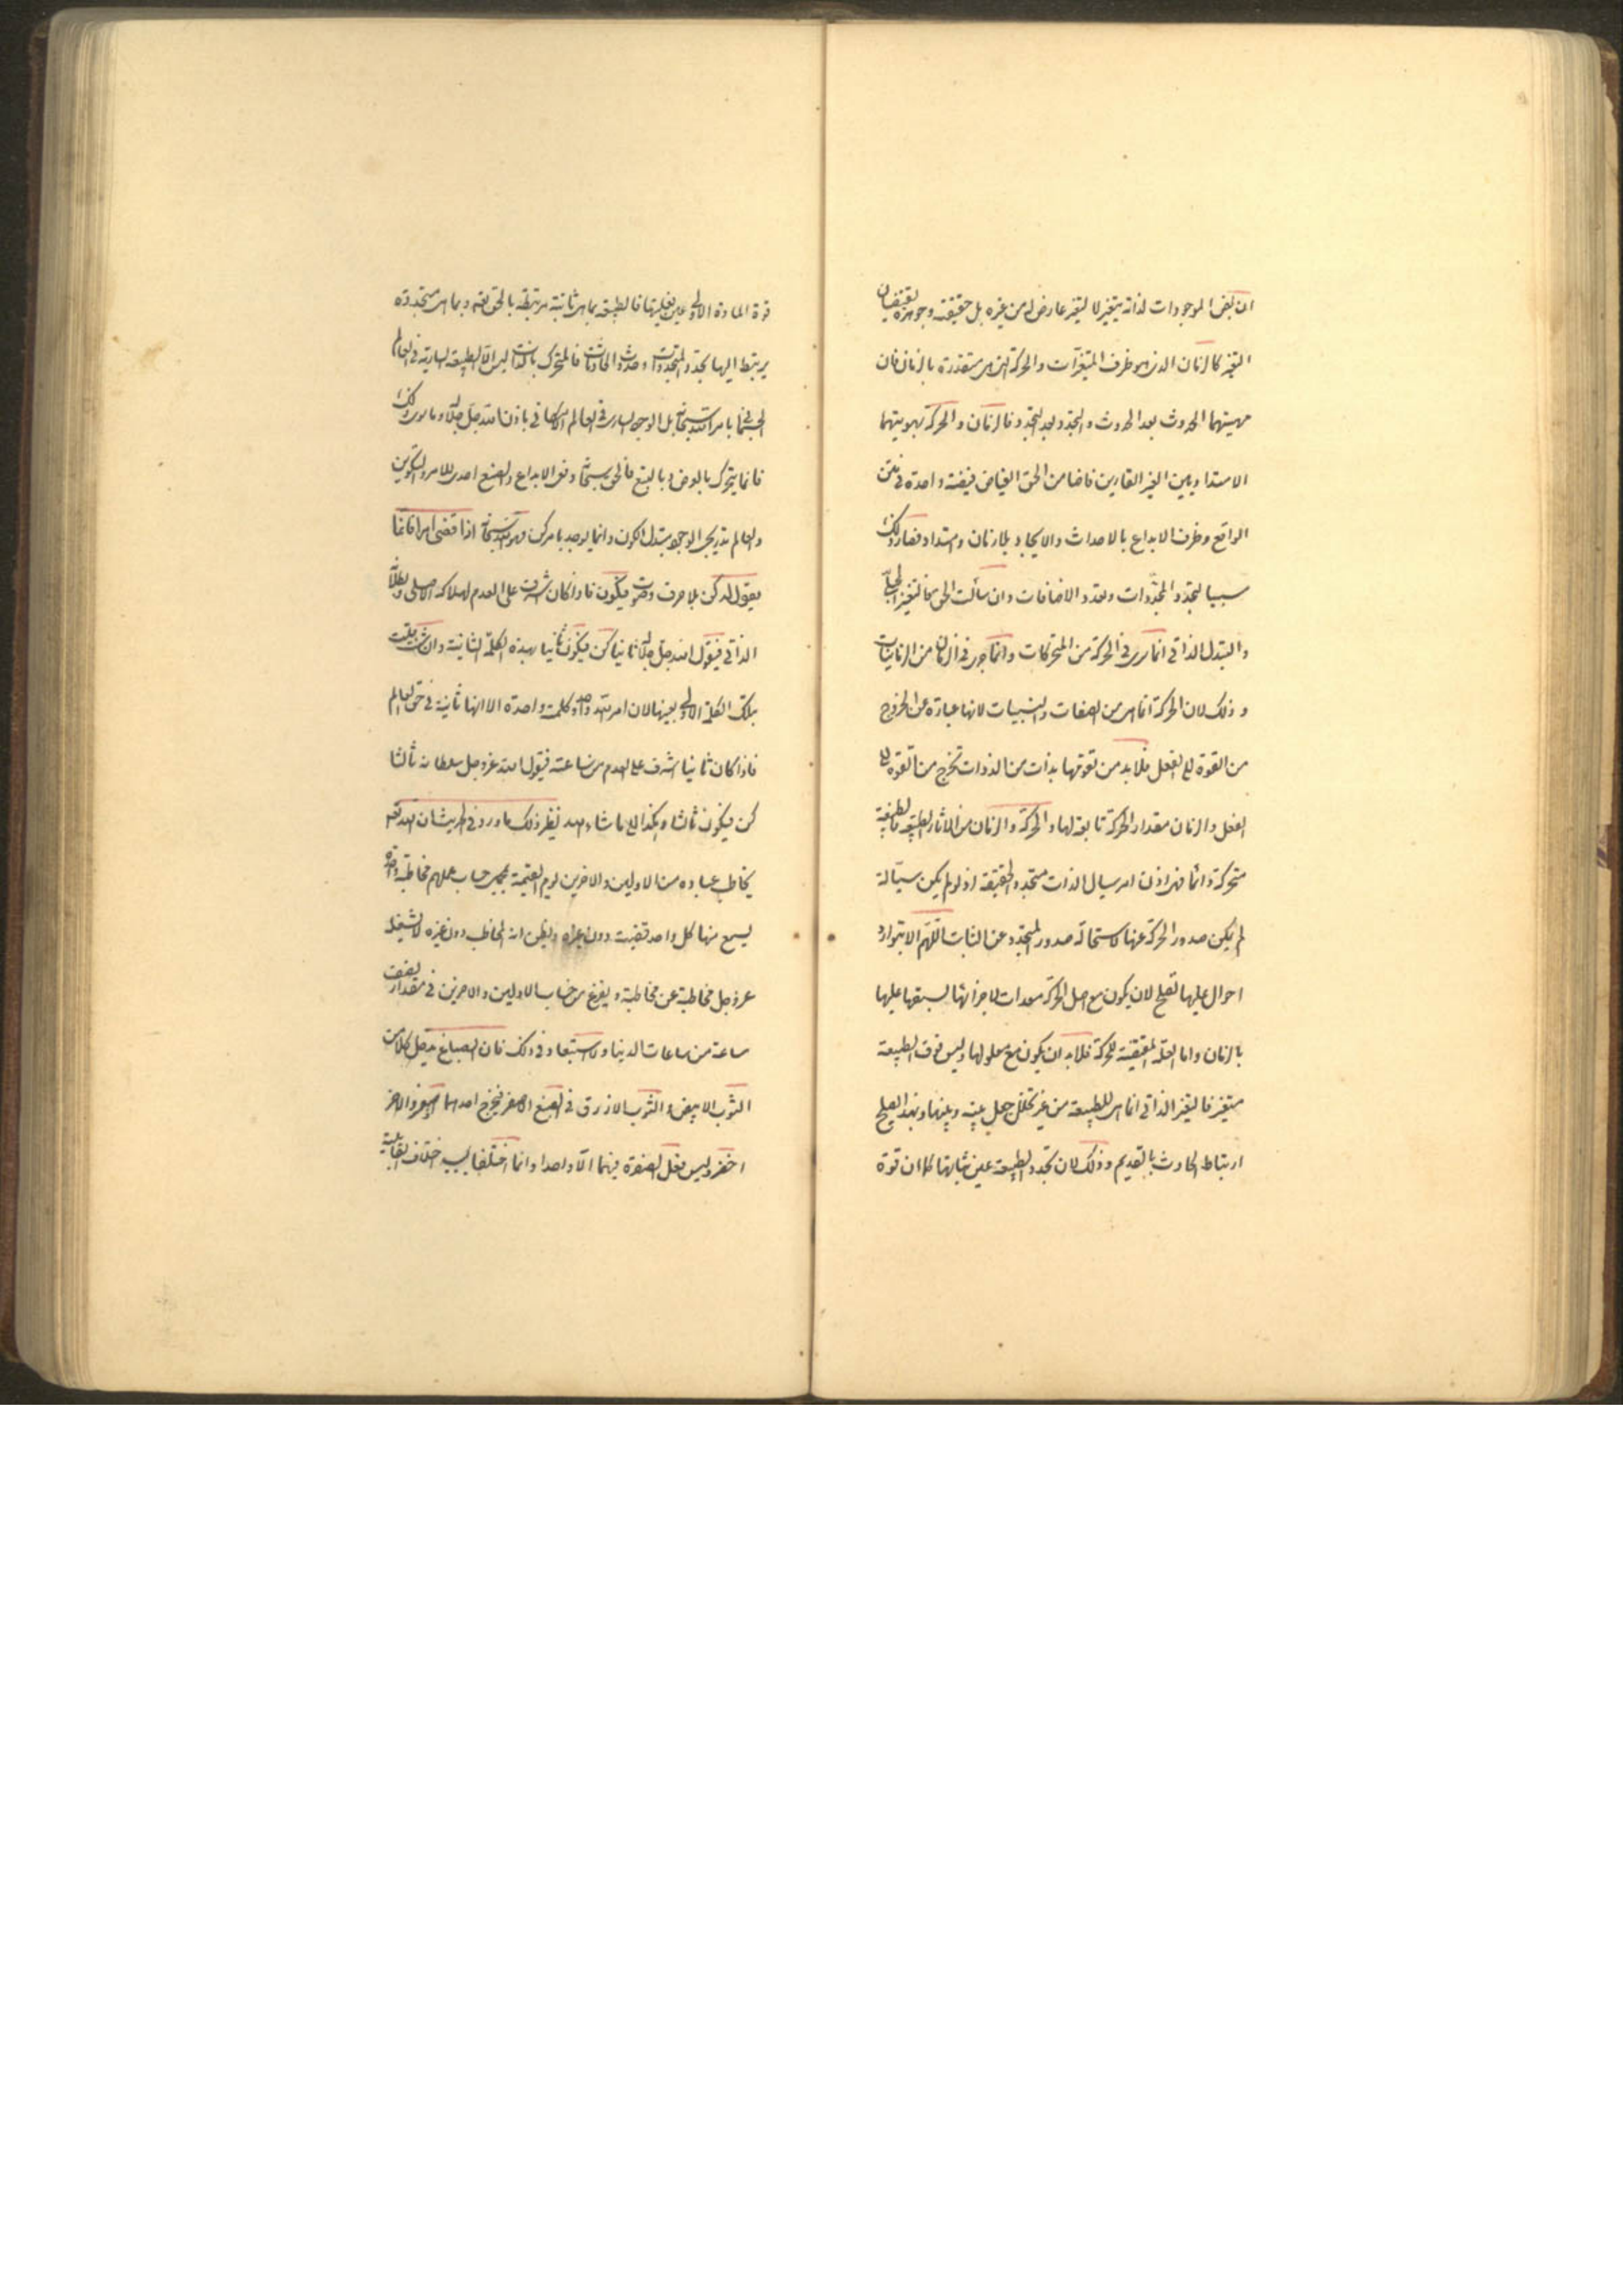 ان بعض الموجودات لذاته يتغير لا لتغير عارض له من غيره بل حقيقته وجوهره يقتضيان
التغير كالزمان الذى هو ظرف المتغيرات والحركة التى هى متقدرة بالزمان فان
مهيتهما الحدوث بعد الحدوث والتجدد بعد التجدد فالزمان والحركة بهويتهما
الامتداديين الغير القارين فاضا من الحق الفياض فيضة واحدة فى متن
الواقع وظرف الابداع بالاحداث والايجاد بلا زمان وامتداد فصار ذلك
سببا لتجدد المتجددات وتعدد الاضافات وان سألت الحق فالتغير
والتبدل الذاتى انما سرى فى الحركة من المتحركات وانما جرى فى الزمان من الزمانيات
وذلك لان الحركة انما هى من الصفات والنسبيات لانها عبارة عن الخروج
من القوة الى الفعل فلا بد من تقومها بذات من الذوات تخرج من القوة الى
الفعل والزمان مقدار الحركة تابعة لها والحركة والزمان من الاثار الطبيعة فالطبيعة
متحركة دائما فهى اذن امر سيال الذات متجدد الحقيقة اذ لو لم يكن سيالة
لم يكن صدور الحركة عنها لاستحالة صدور المتجدد عن الثابت اللهم الا بتوارد
احوال عليها تصلح لان يكون مع اصل الحركة معدات لاجزائها لسبقها عليها
بالزمان واما العلة الحقيقية للحركة فلا بد ان يكون مع معلولها وليس فوق الطبيعة
متغير فالتغير الذاتى انما هى للطبيعة من غير تخلل جعل بينه وبينها وبهذا يصلح
ارتباط الحادث بالقديم وذلك لان تجدد الطبيعة عين ثباتها كما ان قوة
قوة المادة الاولى عين فعليتها فالطبيعة بما هى ثابتة مرتبطة بالحق تعه وبما هى متجددة
يرتبط اليها تجدد المتجددات وحدوث الحادثات فالمتحرك بالذات ليس الا الطبيعة السارية فى العالم
الجسمانى بامر الله سبحانه بل الوجه السارى فى العالم الامكانى باذن الله جل جلاله وما سوى ذلك
فانما يتحرك بالعرض وبالتبع فالحق سبحانه وفق الابداع والصنع اصدر للامر والتكوين
والعالم تدريجى الوجود متبدل الكون وانما يوجد بامر كن فهو سبحانه اذا قضى امرا فانما
يقول له كن بلا حرف وصوت فيكون فاذا كان اشرف على العدم لهلاكه الاصلى وبطلانه
الذاتى فيقول الله جل جلاله ثانيا كن فيكون ثانيا بهذه الكلمة الثانية وان شئت قلت
بتلك الكلمة الاولى بعينها لان امر الله واحد وكلمته واحدة الا انها ثانية فى حق العالم
فاذا كان ثانيا اشرف على العدم من ساعته فيقول الله عز وجل سلطانه ثالثا
كن فيكون ثالثا وهكذا الى ما شاء الله نظير ذلك ما ورد فى الحديث ان الله تعه
يخاطب عباده من الاولين والاخرين يوم القيمة بمجمل حساب عملهم مخاطبة واحدة
يسمع منها كل واحد قضيته دون غيره ويظن انه المخاطب دون غيره لا يشغله
عز وجل مخاطبة عن مخاطبة ويفرغ من حساب الاولين والاخرين فى مقدار نصف
ساعة من ساعات الدنيا ولا استبعاد فى ذلك فان الصباغ يدخل كلا من
الثوب الابيض والثوب الازرق فى الصبغ الاصفر فيخرج احدهما اصفر والاخر
اخضر وليس فعل الصفرة فيهما الا واحدا وانما اختلفا بسبب اختلاف القابلية